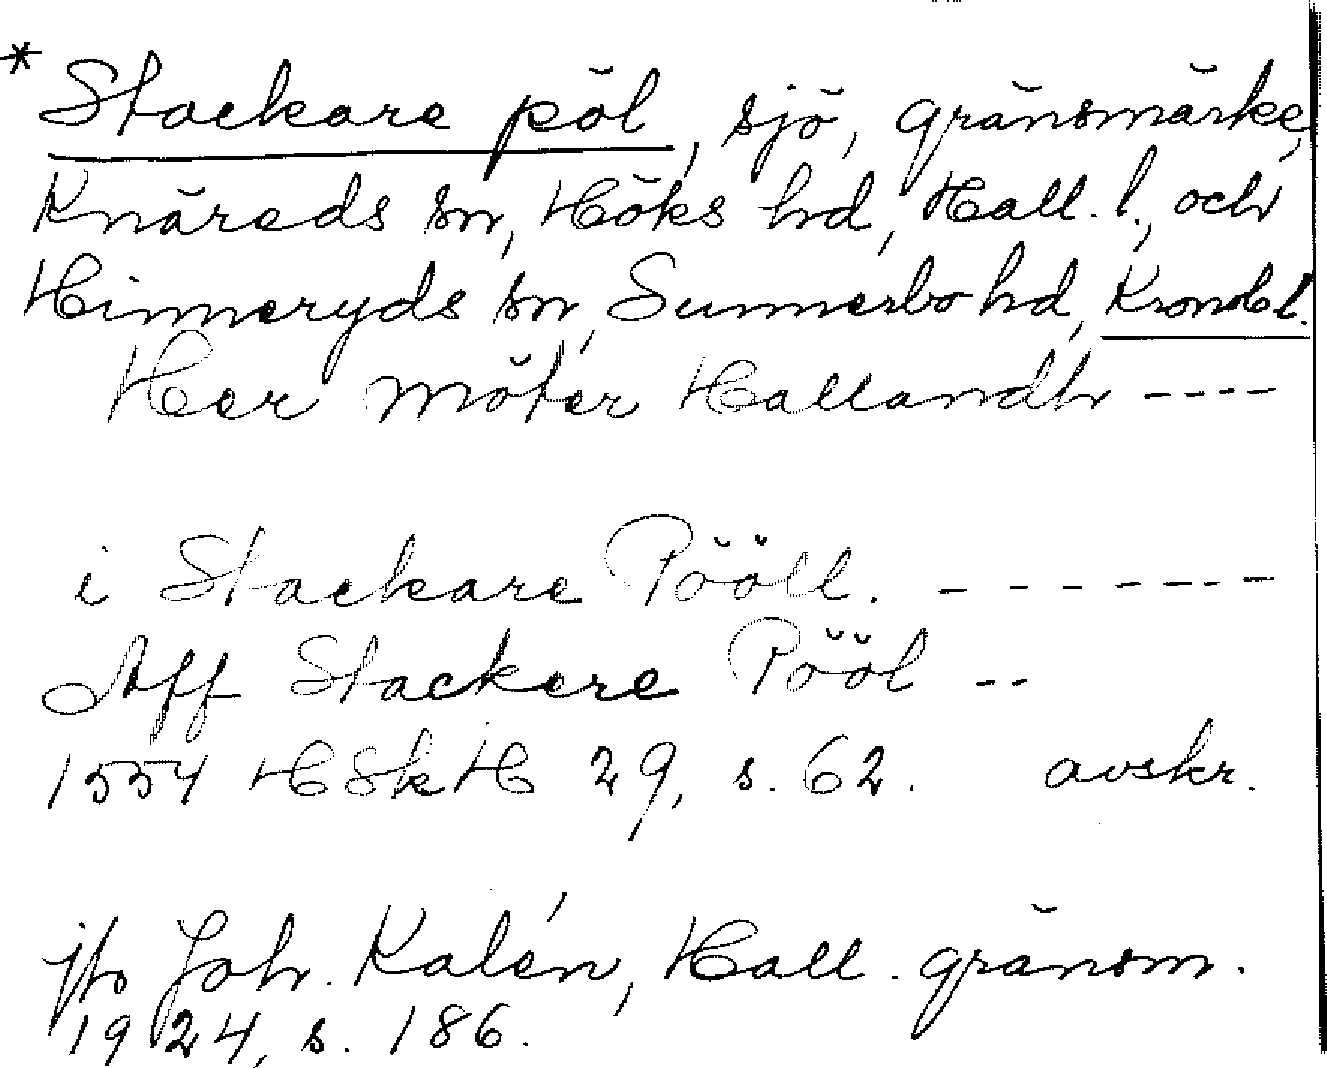 * Stackare pöl, sjö, gränsmärke,
Knäreds sn, Höks hd, Hall. l., och
Hinneryds sn, Sunnerbo hd, Kronob l.
Her möter Hallandh ----
i Stackare Pööll. -------
Aff Stackere Pööl --
1554 HSkH 29, s. 62. avskr.
jfr Joh. Kalén, Hall. gränsm.
1924, s. 186.